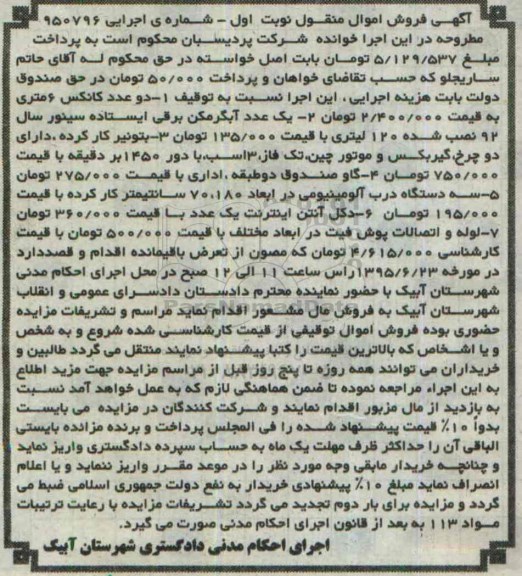 آگهـی فروش اموال منقـول نوبت اول - شماره ی اجرایی ۹۵۰۷۹۶
مطروحه در این اجرا خوانده شــرکت پردیســبان محکوم است به پرداخت
مبلــغ ۵/۱۲۹/۵۳۷ تومــان بابت اصل خواســته در حق محکوم لــه آقای حاتم
ســاریجلو که حســب تقاضای خواهان و پرداخت ۵۰/۰۰۰ تومان در حق صندوق
دولت بابت هزینه اجرایی ، این اجرا نسـبت به توقیف ۱-دو عدد کانکس ۶متری
به قیمت ۲/۴۰۰/۰۰۰ تومان ۲- یک عدد آبگرمکن برقی ایسـتاده سینور سال
۹۲ نصب شــده ۱۲۰ لیتری با قیمت ۱۳۵/۰۰۰ تومان ۳-بتونیر کار کرده ،دارای
دو چرخ،گیربکــس و موتور چین،تک فاز،۳اسـب،با دور ۱۴۵۰بر دقیقه با قیمت
۷۵۰/۰۰۰ تومان ۴-گاو صنــدوق دوطبقه ،اداری با قیمــت ۲۷۵/۰۰۰ تومان
۵-ســه دستگاه درب آلومینیومی در ابعاد ۷۰،۱۸۰ سـانتیمتر کار کرده با قیمت
۱۹۵/۰۰۰ تومــان ۶-دکل آنتن اینترنت یک عدد بــا قیمت ۳۶۰/۰۰۰ تومان
۷-لوله و اتصالات پوش فیت در ابعاد مختلف با قیمت ۵۰۰/۰۰۰ تومان با قیمت
کارشناسی ۴/۶۱۵/۰۰۰ تومان که مصون از تعرض باقیمانده اقدام و قصددارد
در مورخه ۱۳۹۵/۶/۲۳راس ساعت ۱۱ الی ۱۲ صبح در محل اجرای احکام مدنی
شهرســتان آبیک با حضور نماینده محترم دادســتان دادســرای عمومی و انقلاب
شهرســتان آبیک به فروش مال مشــعور اقدام نماید مراسم و تشریفات مزایده
حضوری بوده فروش اموال توقیفی از قیمت کارشناسـی شده شروع و به شخص
و یا اشــخاص که بالاترین قیمت را کتبا پیشــنهاد نمایند منتقل می گردد طالبین و
خریداران می توانند همه روزه تا پنج روز قبل از مراسم مزایده جهت مزید اطلاع
به این اجراء مراجعه نموده تا ضمن هماهنگی لازم که به عمل خواهد آمد نسـبت
به بازدید از مال مزبور اقدام نمایند و شــرکت کنندگان در مزایده می بایســت
بدوا ۱۰٪ قیمت پیشــنهاد شــده را فی المجلس پرداخت و برنده مزائده بایستی
الباقی آن را حداکثر ظرف مهلت یک ماه به حساب سپرده دادگستری واریز نماید
و چنانچــه خریدار مابقی وجه مورد نظر را در موعد مقــرر واریز ننماید و یا اعلام
انصراف نماید مبلغ ۱۰٪ پیشنهادی خریدار به نفع دولت جمهوری اسلامی ضبط می
گردد و مزایده برای بار دوم تجدید می گردد تشــریفات مزایده با رعایت ترتیبات
مــواد ۱۱۳ به بعد از قانون اجرای احکام مدنی صورت می گیرد.
اجرای احکام مدنی دادگستری شهرستان آبیک